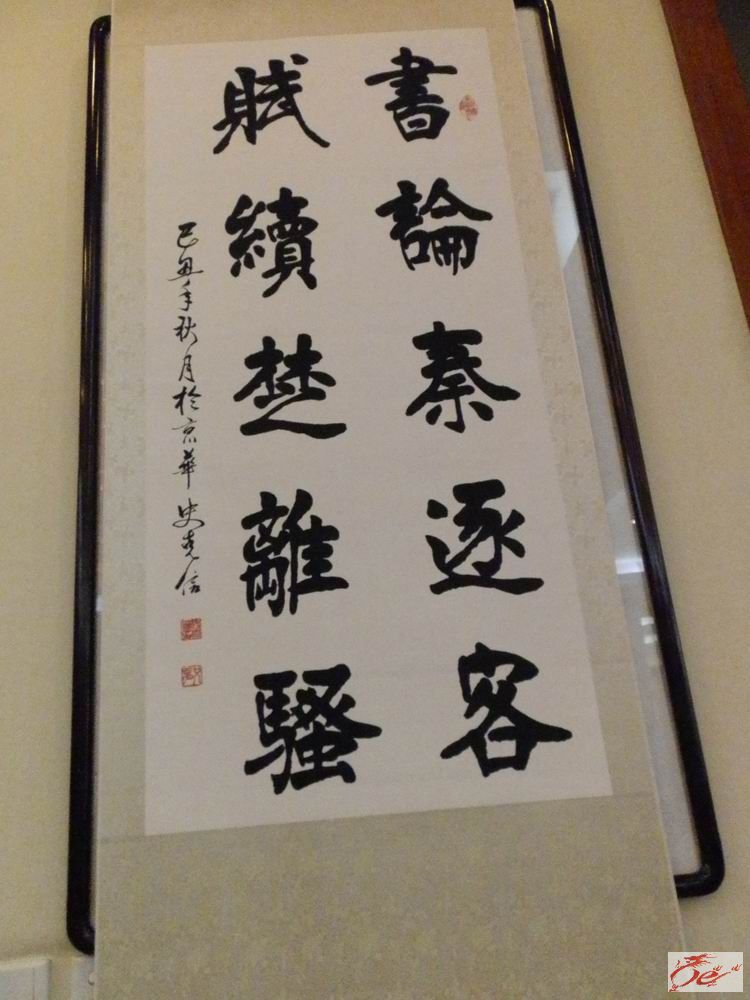 書論秦逐客
賦續楚離騷
己丑年秋月於京華史克信